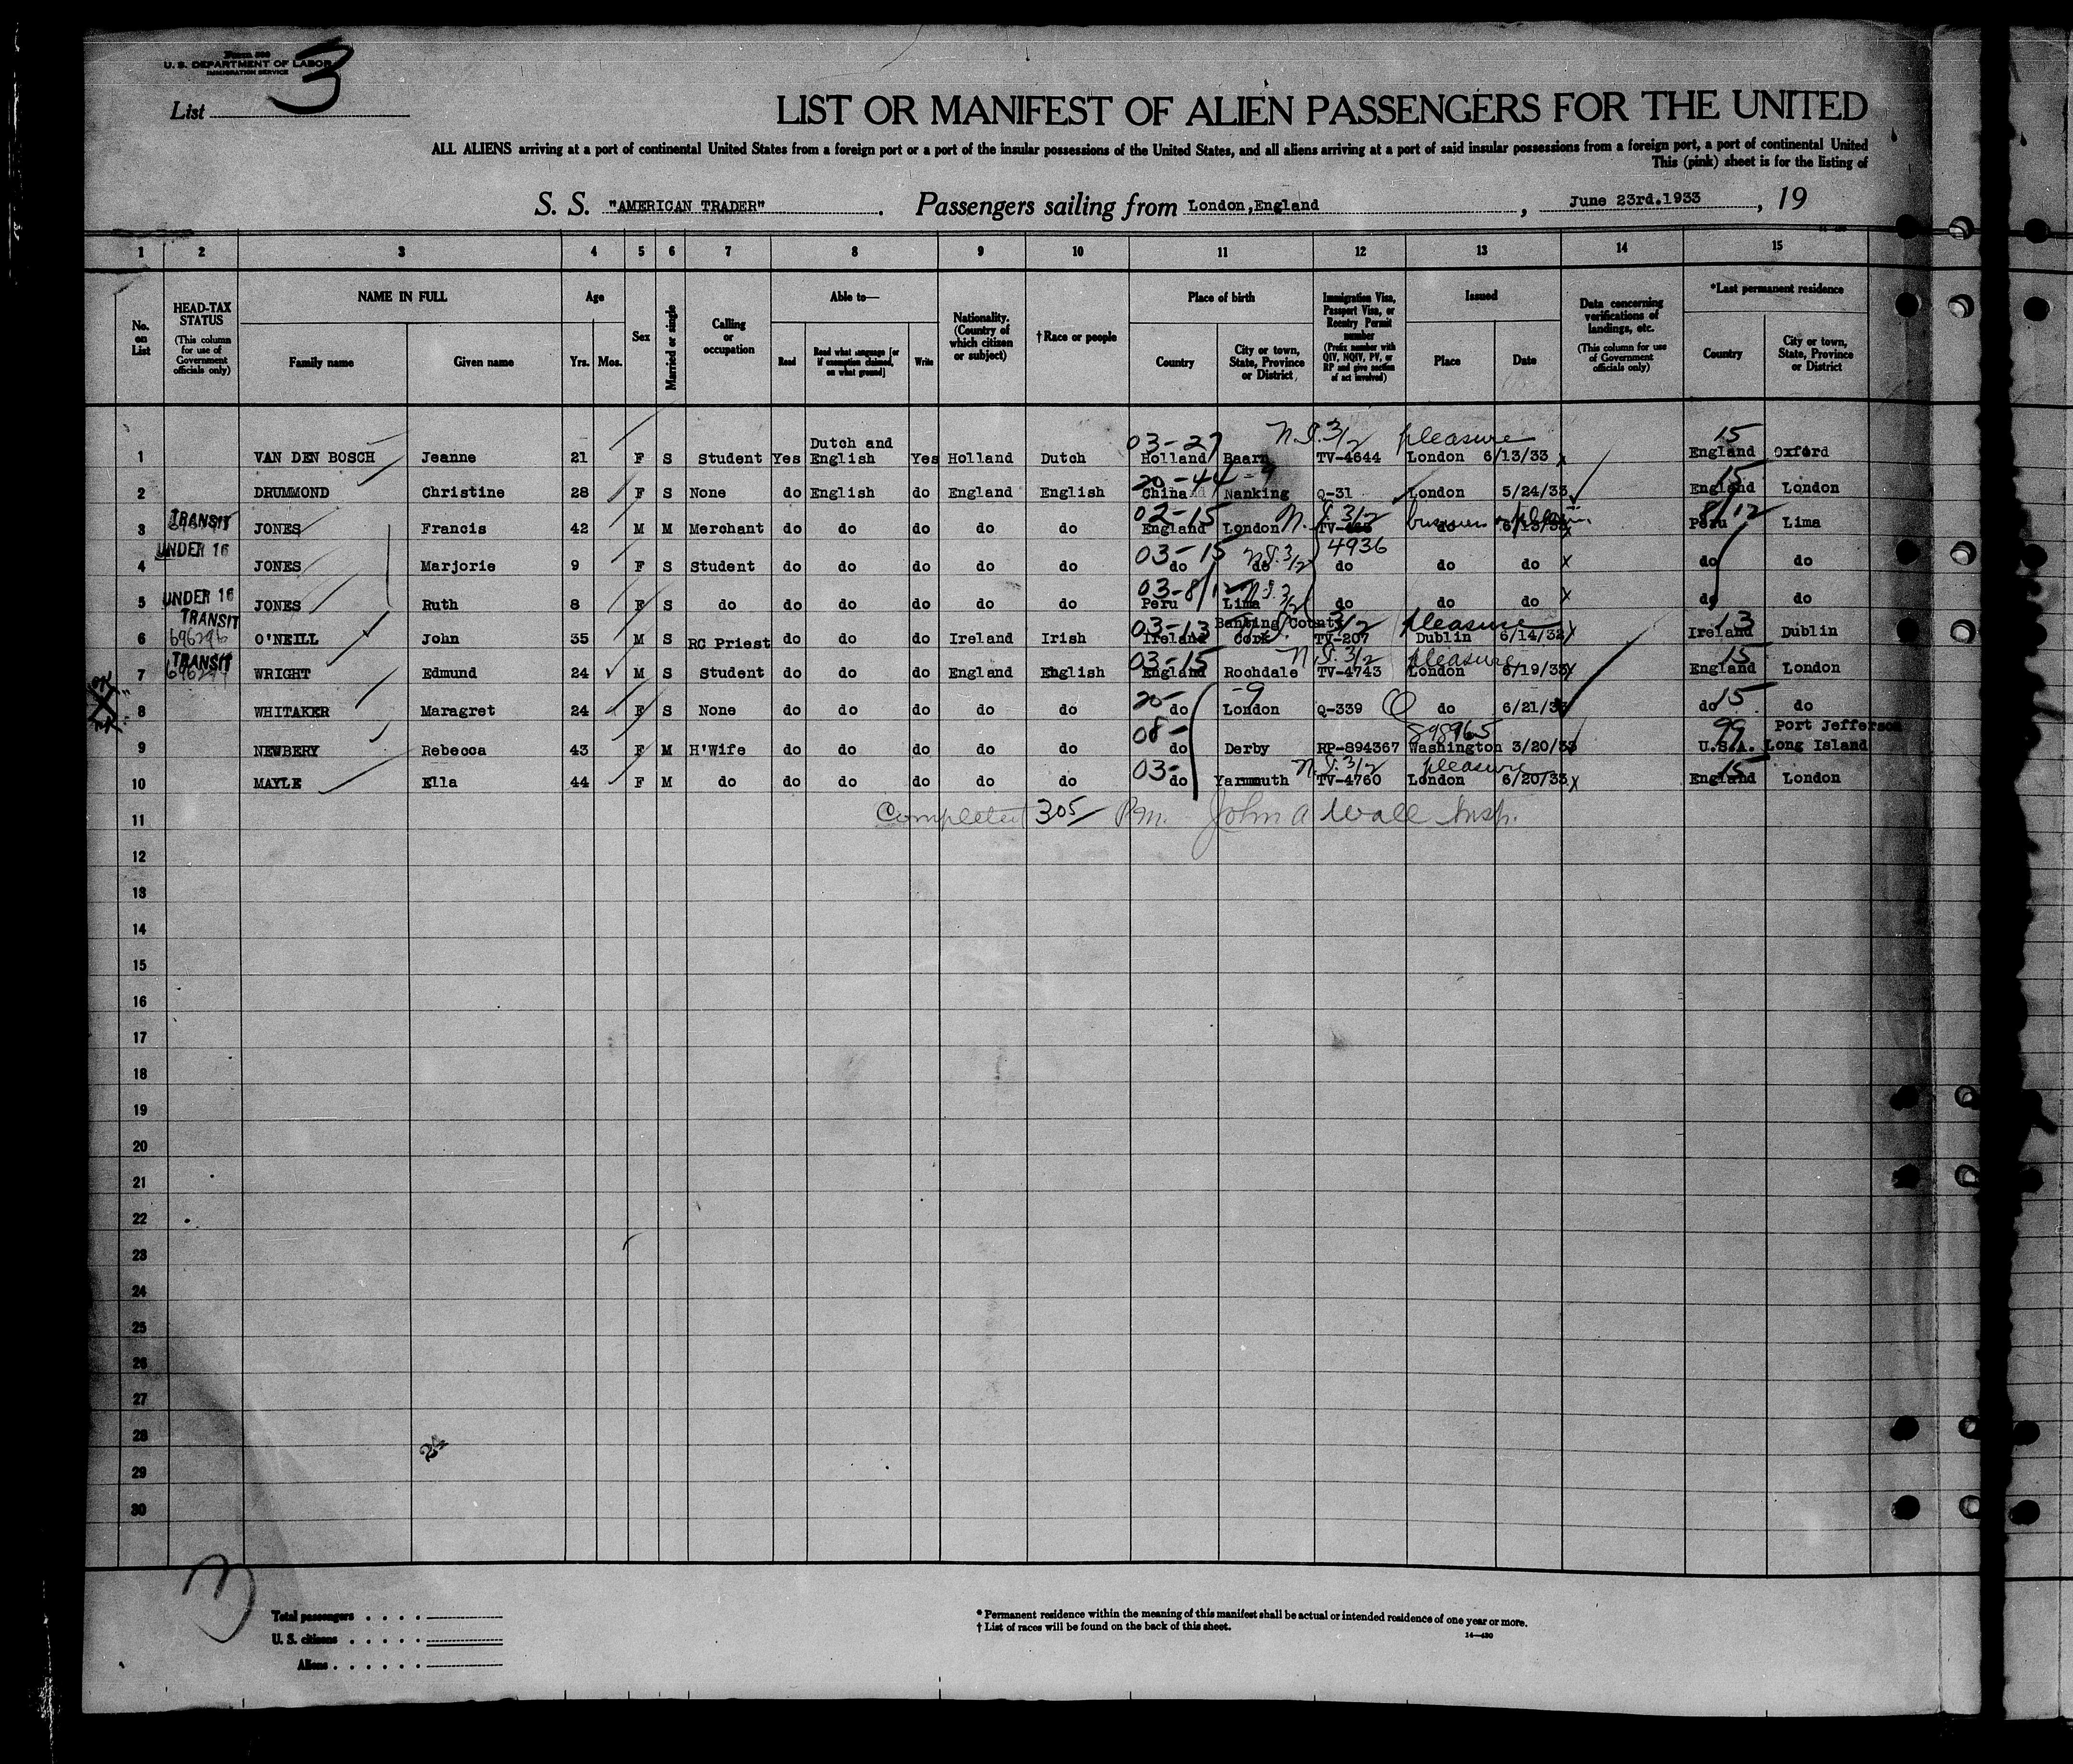 Form 500
U. S. DEPARTMENT OF LABOR
IMMIGRATION SERVICE
List 3
LIST OR MANIFEST OF ALIEN PASSENGERS FOR THE UNITED
ALL ALIENS arriving at a port of continental United States from a foreign port or a port of the insular possessions of the United States, and all aliens arriving at a port of said insular possessions from a foreign port, a port of continental United
This (pink) sheet is for the listing of
S. S. "AMERICAN TRADER". Passengers sailing from London,England, June 23rd.1933, 19
1 2 3 4 5 6 7 8 9 10 11 12 13 14 15
No. on List
HEAD-TAX STATUS (This column for use of Government officials only)
NAME IN FULL Family name Given name
Age Yrs. Mos.
Sex
Married or single
Calling or occupation
Able to— Read Read what language [or if exemption claimed, on what ground] Write
Nationality. (Country of which citizen or subject)
† Race or people
Place of birth Country City or town, State, Province or District
Immigration Visa, Passport Visa, or Reentry Permit number (Prefix number with QIV, NQIV, PV, or RP and give section of act involved)
Issued Place Date
Data concerning verifications of landings, etc. (This column for use of Government officials only)
*Last permanent residence Country City or town, State, Province or District
03-27 N.I. 3/2 pleasure 15
1 VAN DEN BOSCH Jeanne 21 F S Student Yes Dutch and English Yes Holland Dutch Holland Baarn TV-4644 London 6/13/33 x England Oxford
20-44 -9 15
2 DRUMMOND Christine 28 F S None do English do England English China Nanking Q-31 London 5/24/33 England London
TRANSIT 02-15 N.I. 3/2 8/12
3 JONES Francis 42 M M Merchant do do do do do England London do Peru Lima
UNDER 16 03-15 N.I. 3/2 4936
4 JONES Marjorie 9 F S Student do do do do do do do do do do x do do
UNDER 16 03-8/12 N.I. 3/2
5 JONES Ruth 8 F S do do do do do do Peru Lima do do do x do do
TRANSIT 696296 03-13 Banting County 3/2 pleasure 13
6 O'NEILL John 35 M S RC Priest do do do Ireland Irish Ireland Cork TV-207 Dublin 6/14/32 Ireland Dublin
TRANSIT 03-15 N.I. 3/2 pleasure 15
7 WRIGHT Edmund 24 M S Student do do do England English England Rochdale TV-4743 London 6/19/33 x England London
20- -9 15
8 WHITAKER Maragret 24 F S None do do do do do do London Q-339 Q do 6/21/33 do do
08- 898965 99 Port Jefferson
9 NEWBERY Rebecca 43 F M H'Wife do do do do do do Derby RP-894367 Washington 3/20/33 U.S.A. Long Island
03- N.I. 3/2 pleasure 15
10 MAYLE Ella 44 F M do do do do do do do Yarmouth TV-4760 London 6/20/33 x England London
11 Completed 305 P.m. John A Wall Insp.
12
13
14
15
16
17
18
19
20
21
22
23
24
25
26
27
28
29
30
24
3
Total passengers
U. S. citizens
Aliens
* Permanent residence within the meaning of this manifest shall be actual or intended residence of one year or more.
† List of races will be found on the back of this sheet.
14—430